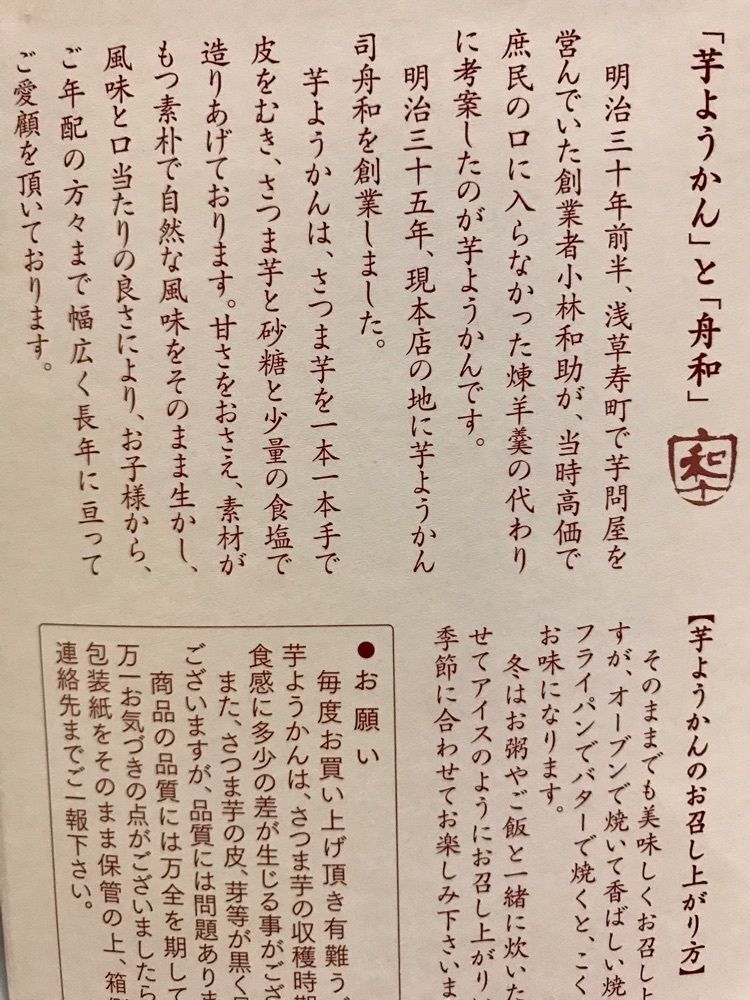 「芋ようかん」と「舟和」
和
明治三十年前半、浅草寿町で芋問屋を
営んでいた創業者小林和助が、当時高価で
庶民の口に入らなかった煉羊羹の代わり
に考案したのが芋ようかんです。
明治三十五年、現本店の地に芋ようかん
司舟和を創業しました。
芋ようかんは、さつま芋を一本一本手で
皮をむき、さつま芋と砂糖と少量の食塩で
造りあげております。甘さをおさえ、素材が
もつ素朴で自然な風味をそのまま生かし、
風味と口当たりの良さにより、お子様から、
ご年配の方々まで幅広く長年に亘って
ご愛顧を頂いております。
【芋ようかんのお召し上がり方】
そのままでも美味しくお召し上
すが、オーブンで焼いて香ばしい焼
フライパンでバターで焼くと、こく
お味になります。
冬はお粥やご飯と一緒に炊いた
せてアイスのようにお召し上がり
季節に合わせてお楽しみ下さいま
●お願い
毎度お買い上げ頂き有難うご
芋ようかんは、さつま芋の収穫時期
食感に多少の差が生じる事がござ
また、さつま芋の皮、芽等が黒く
ございますが、品質には問題ありま
商品の品質には万全を期して
万一お気づきの点がございましたら
包装紙をそのまま保管の上、箱
連絡先までご一報下さい。